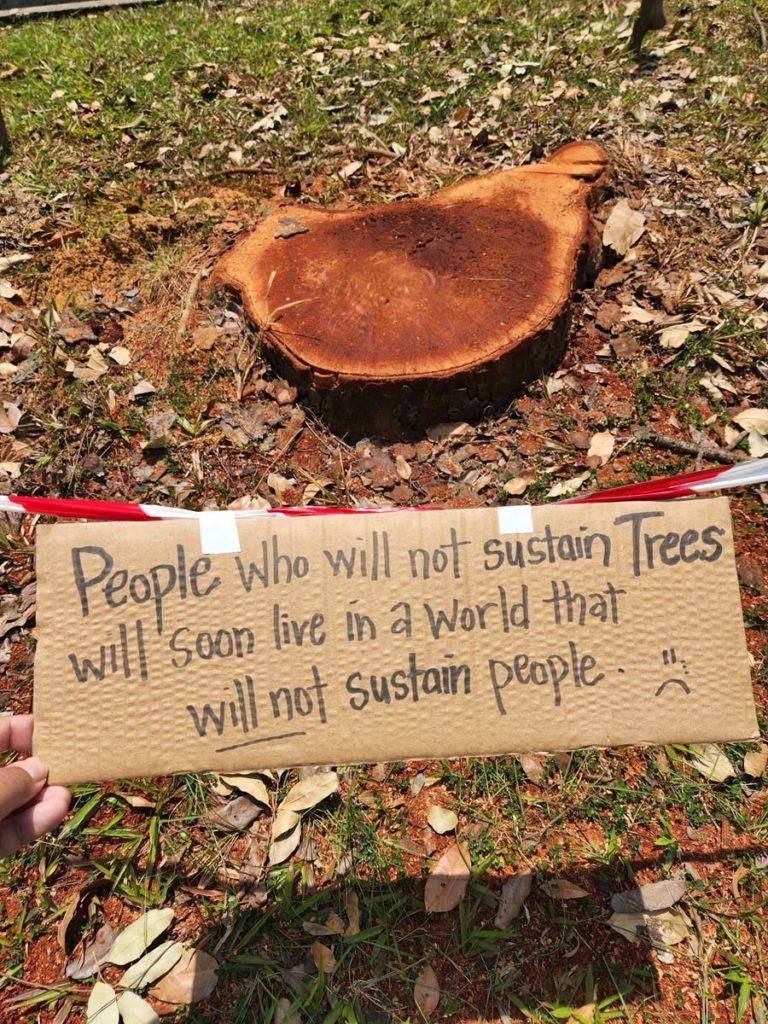 People who will not sustain Trees
will soon live in a world that
will not sustain people.